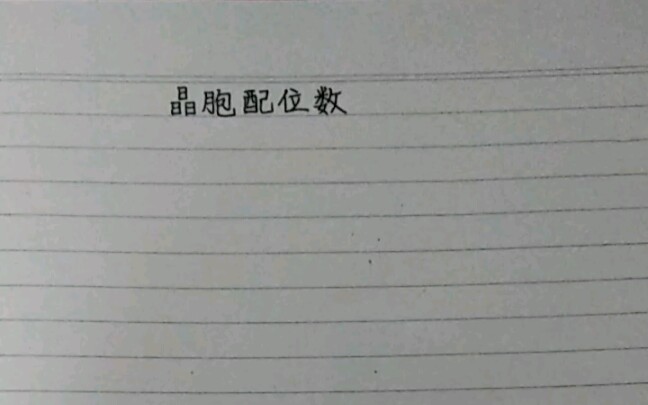 晶胞配位数